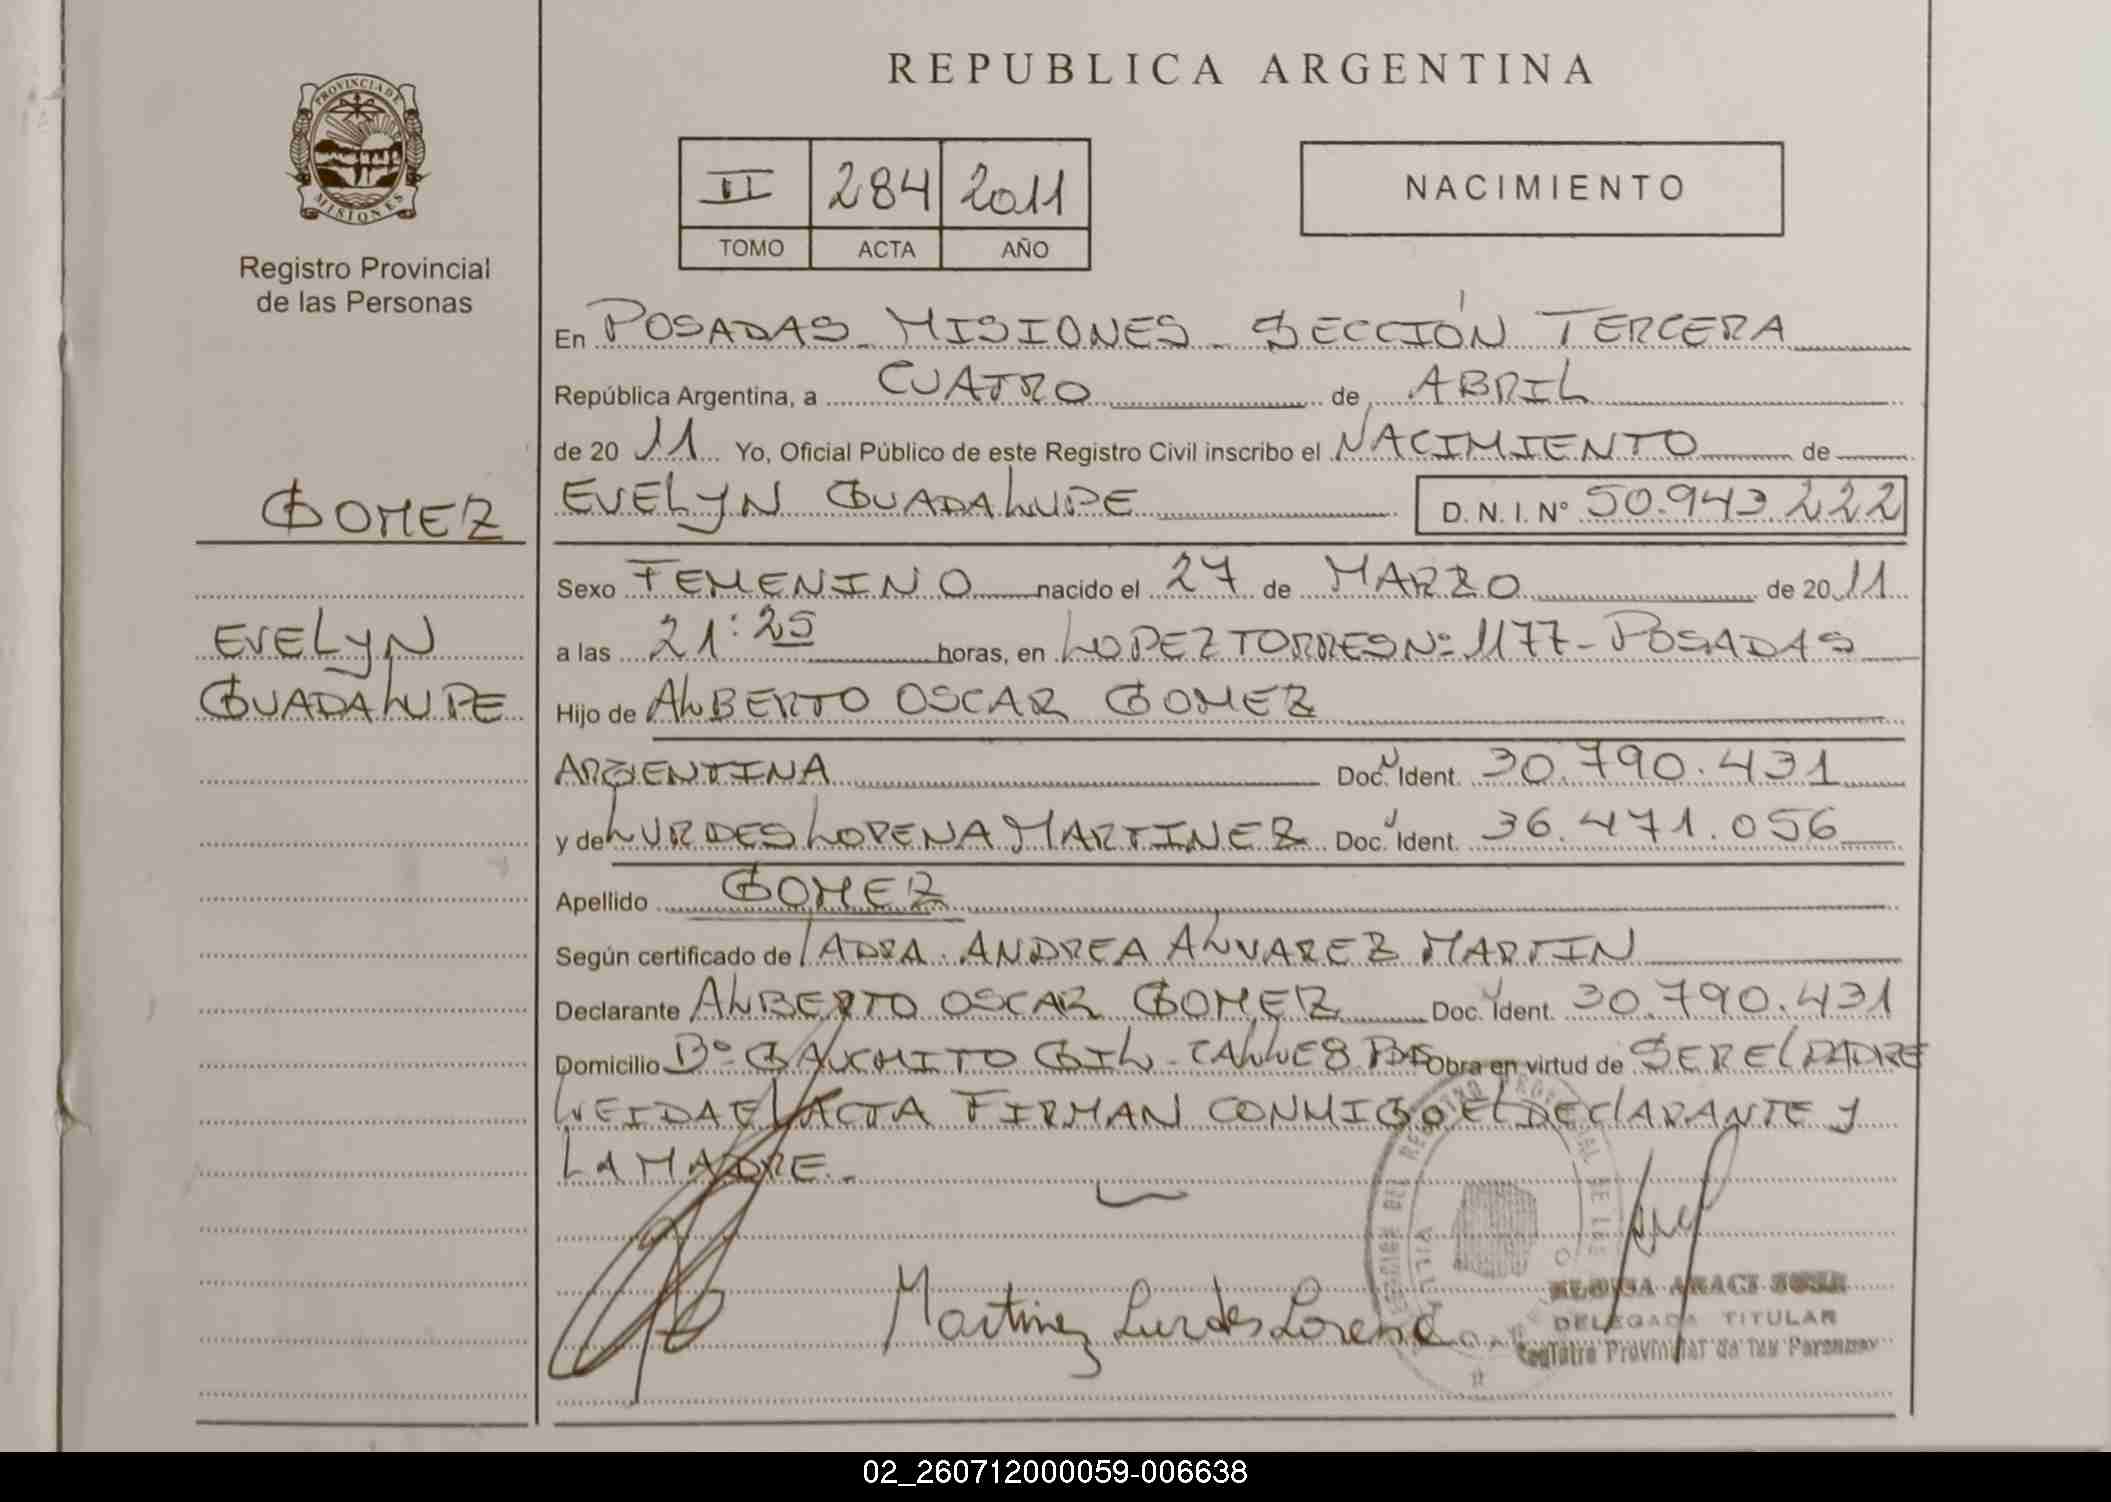 REPUBLICA ARGENTINA
PROVINCIA DE
MISIONES
Registro Provincial
de las Personas
II 284 2011
TOMO ACTA AÑO
NACIMIENTO
En POSADAS - MISIONES - SECCIÓN TERCERA
República Argentina, a CUATRO de ABRIL
de 20 11 Yo, Oficial Público de este Registro Civil inscribo el NACIMIENTO de
GOMEZ
EVELYN GUADALUPE D. N. I. N° 50.943.222
Sexo FEMENINO nacido el 27 de MARZO de 20 11
EVELYN
GUADALUPE
a las 21:25 horas, en LOPEZ TORRES Nº 1177 - POSADAS
Hijo de ALBERTO OSCAR GOMEZ
ARGENTINA Doc. Ident. 30.790.431
y de LURDES LORENA MARTINEZ Doc. Ident. 36.471.056
Apellido GOMEZ
Según certificado de LA DRA. ANDREA ALVAREZ MARTIN
Declarante ALBERTO OSCAR GOMEZ Doc. Ident. 30.790.431
Domicilio Bº GAUCHITO GIL - CALLE 8 Obra en virtud de SER EL PADRE
LEIDA EL ACTA FIRMAN CONMIGO EL DECLARANTE Y
LA MADRE.-
Martinez Lurdes Lorena
DELEGADA TITULAR
Registro Provincial de las Personas
02_260712000059-006638